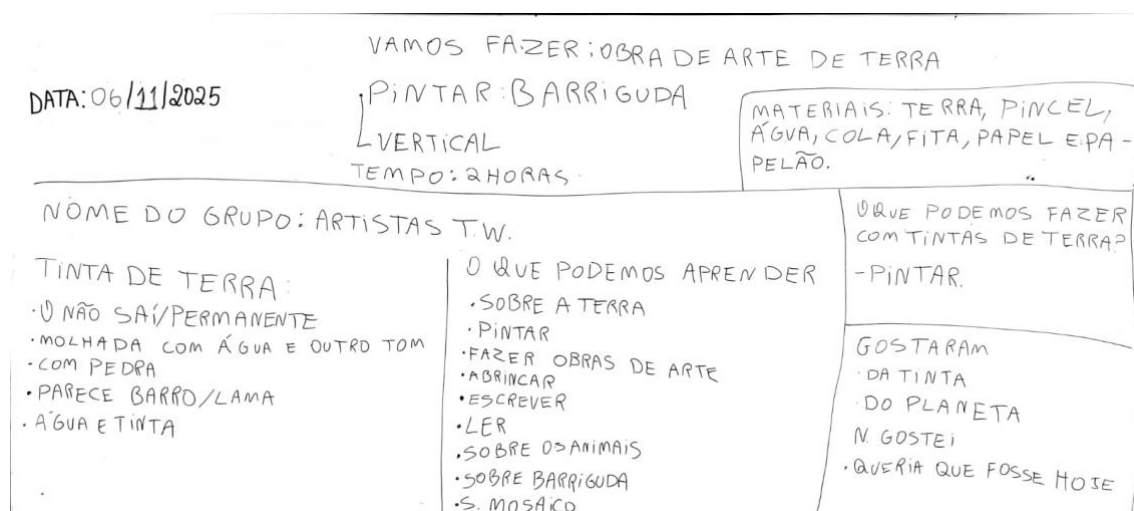 VAMOS FAZER: OBRA DE ARTE DE TERRA
DATA: 06/11/2025
PINTAR: BARRIGUDA
VERTICAL
TEMPO: 2HORAS
MATERIAIS: TERRA, PINCEL,
ÁGUA, COLA, FITA, PAPEL E PA-
PELÃO.
NOME DO GRUPO: ARTISTAS T.W.
TINTA DE TERRA:
• NÃO SAÍ/PERMANENTE
• MOLHADA COM ÁGUA E OUTRO TOM
• COM PEDRA
• PARECE BARRO/LAMA
• ÁGUA E TINTA
O QUE PODEMOS APRENDER
• SOBRE A TERRA
• PINTAR
• FAZER OBRAS DE ARTE
• ABRINCAR
• ESCREVER
• LER
• SOBRE OS ANIMAIS
• SOBRE BARRIGUDA
• S. MOSAICO
O QUE PODEMOS FAZER
COM TINTAS DE TERRA?
- PINTAR.
GOSTARAM
• DA TINTA
• DO PLANETA
N. GOSTEI
• QUERIA QUE FOSSE HOJE